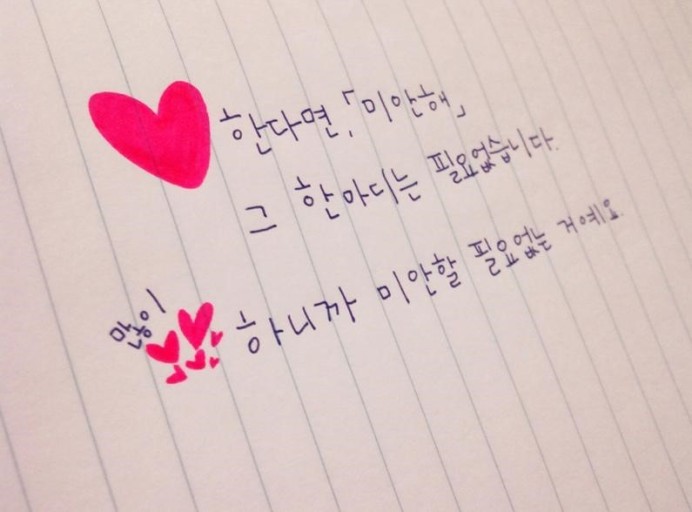 한다면,「미안해」
그 한마디는 필요없습니다.
많이
하니까 미안할 필요없는 거예요.